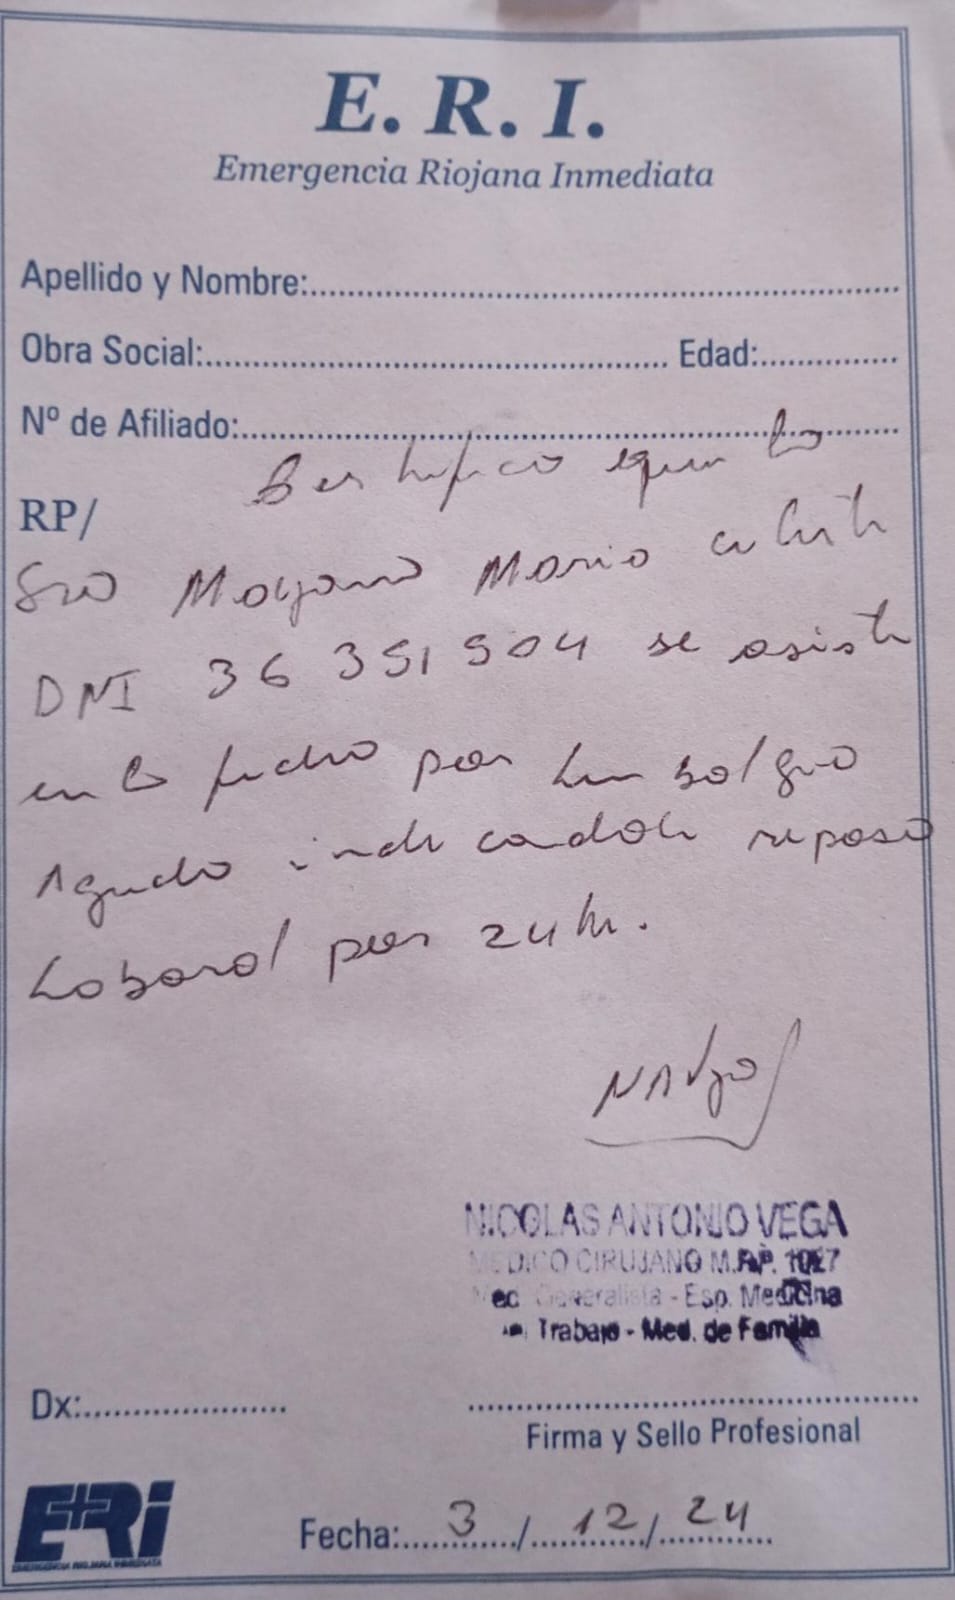 E. R. I.
Emergencia Riojana Inmediata
Apellido y Nombre:
Obra Social: Edad:
Nº de Afiliado:
Certifico que la
RP/
Sra Moyano Maria
DNI 36 391 904 se asiste
en la fecha por Lumbalgia
Aguda indicandole reposo
Laboral por 24 hs.
NICOLAS ANTONIO VEGA
MEDICO CIRUJANO M.P.
Med Generalista - Esp. Medicina
Trabajo - Med. de Familia
Dx:
Firma y Sello Profesional
E+Ri
EMERGENCIA RIOJANA INMEDIATA
Fecha: 3 / 12 / 24